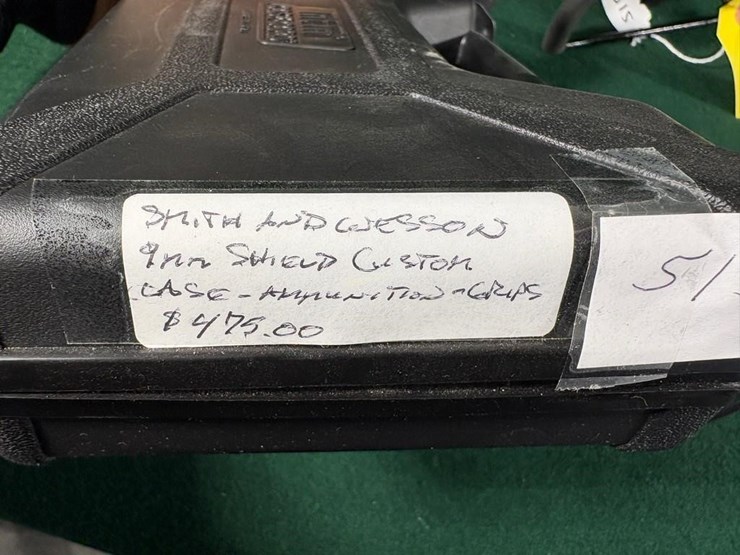 SMITH AND WESSON
9mm SHIELD CUSTOM
CASE - AMMUNITION - GRIPS
$475.00
51
SIS